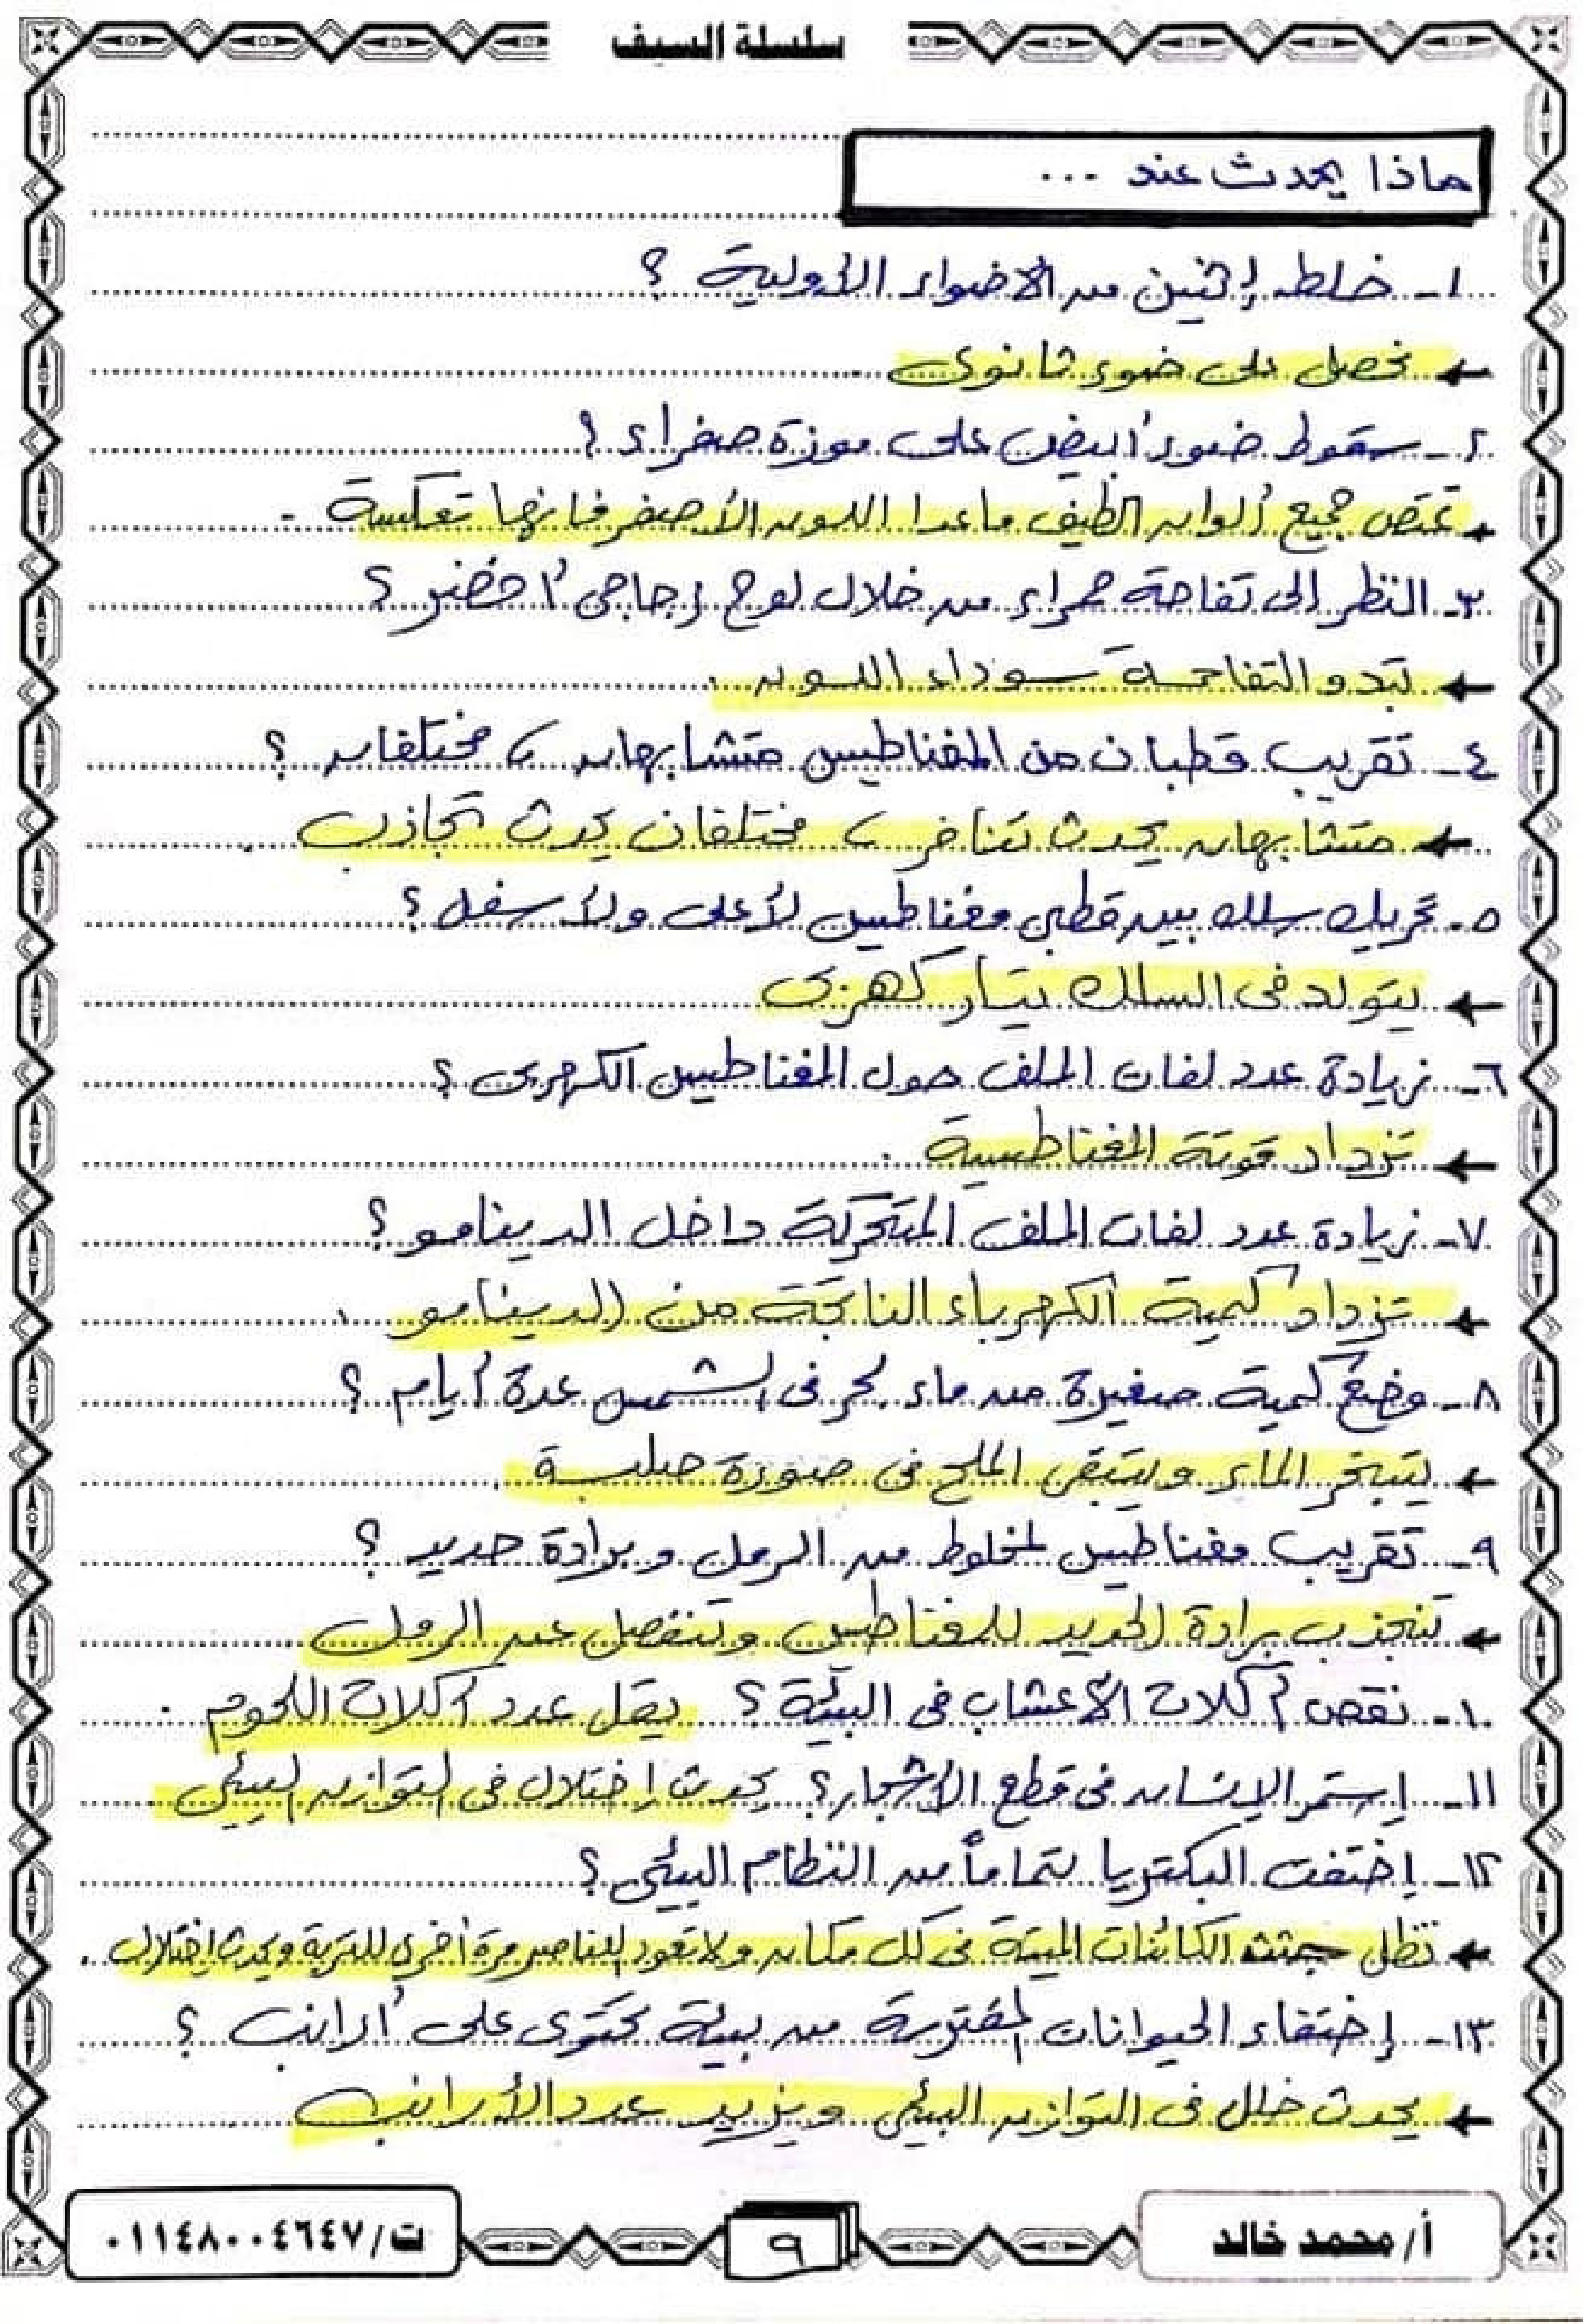 سلسلة السيف
ماذا يحدث عند ...
١- خلط إثنين من الأضواء الأولية ؟
← نحصل على ضوء ثانوى .
٢- سقوط ضوء أبيض على موزة صفراء ؟
← تمتص جميع ألوان الطيف ماعدا اللون الأصفر فإنها تعكسة .
٣- النظر إلى تفاحة حمراء من خلال لوح زجاجى أخضر ؟
← تبدو التفاحة سوداء اللون .
٤- تقريب قطبان من المغناطيس متشابهان ، مختلفان ؟
← متشابهان يحدث تنافر ، مختلفان يحدث تجاذب .
٥- تحريك سلك بين قطبى مغناطيس لأعلى ولأسفل ؟
← يتولد فى السلك تيار كهربى
٦- زيادة عدد لفات الملف حول المغناطيس الكهربى ؟
← تزداد قوتة المغناطيسية .
٧- زيادة عدد لفات الملف المتحركة داخل الدينامو ؟
← تزداد كمية الكهرباء الناتجة من الدينامو .
٨- وضع كمية صغيرة من ماء بحر فى الشمس عدة أيام ؟
← يتبخر الماء ويتبقى الملح فى صورة صلبة .
٩- تقريب مغناطيس لمخلوط من الرمل و برادة حديد ؟
← تنجذب برادة الحديد للمغناطيس وتنفصل عن الرمل
١٠- نقص آكلات الأعشاب فى البيئة ؟ يقل عدد آكلات اللحوم .
١١- إستمر الإنسان فى قطع الأشجار ؟ يحدث إختلال فى التوازن البيئى
١٢- إختفت البكتريا تماماً من النظام البيئى ؟
← تظل جثث الكائنات الميتة فى كل مكان ولا تعود العناصر مرة أخرى للتربة ويحدث إختلال .
١٣- إختفاء الحيوانات المفترسة من بيئة تحتوى على أرانب ؟
← يحدث خلل فى التوازن البيئى ويزيد عدد الأرانب
أ/ محمد خالد
٩
ت/ ٠١١٤٨٠٠٤٦٤٧